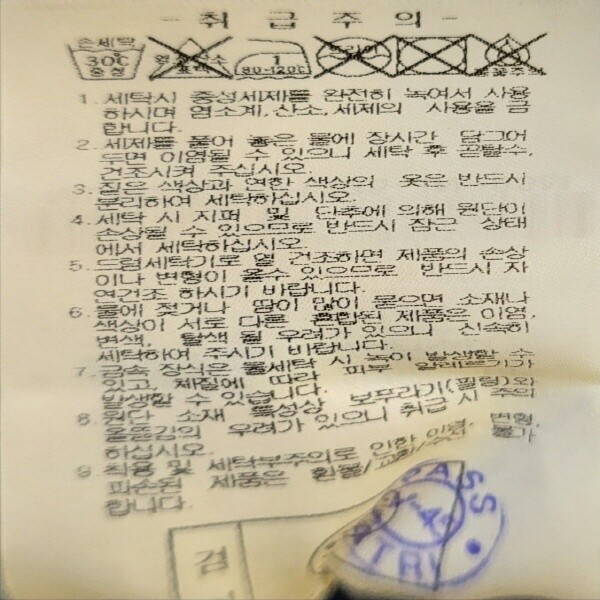 - 취 급 주 의 -
손세탁
30℃
중성
염소
표백
1
80-120℃
드라이
1. 세탁시 중성세제를 완전히 녹여서 사용
하시며 염소계, 산소, 세제의 사용을 금
합니다.
2. 세제를 풀어 놓은 물에 장시간 담그어
두면 이염될 수 있으니 세탁 후 곧탈수,
건조시켜 주십시오.
3. 짙은 색상과 연한 색상의 옷은 반드시
분리하여 세탁하십시오.
4. 세탁 시 지퍼 및 단추에 의해 원단이
손상될 수 있으므로 반드시 잠근 상태
에서 세탁하십시오.
5. 드럼세탁기로 열 건조하면 제품의 손상
이나 변형이 올수 있으므로 반드시 자
연건조 하시기 바랍니다.
6. 물에 젖거나 땀이 많이 묻으면 소재나
색상이 서로 다른 혼합된 제품은 이염,
변색, 탈색 될 우려가 있으니 신속히
세탁하여 주시기 바랍니다.
7. 금속 장식은 물세탁 시 녹이 발생할 수
있고, 체질에 따라 피부 알레르기가
발생할 수 있습니다.
8. 원단 소재 특성상 보프라기(필링)와
올뜯김의 우려가 있으니 취급 시 주의
하십시오.
9. 착용 및 세탁부주의로 인한 이염, 변형,
파손된 제품은 환불/교환/수선 불가
합니다.
검
PASS